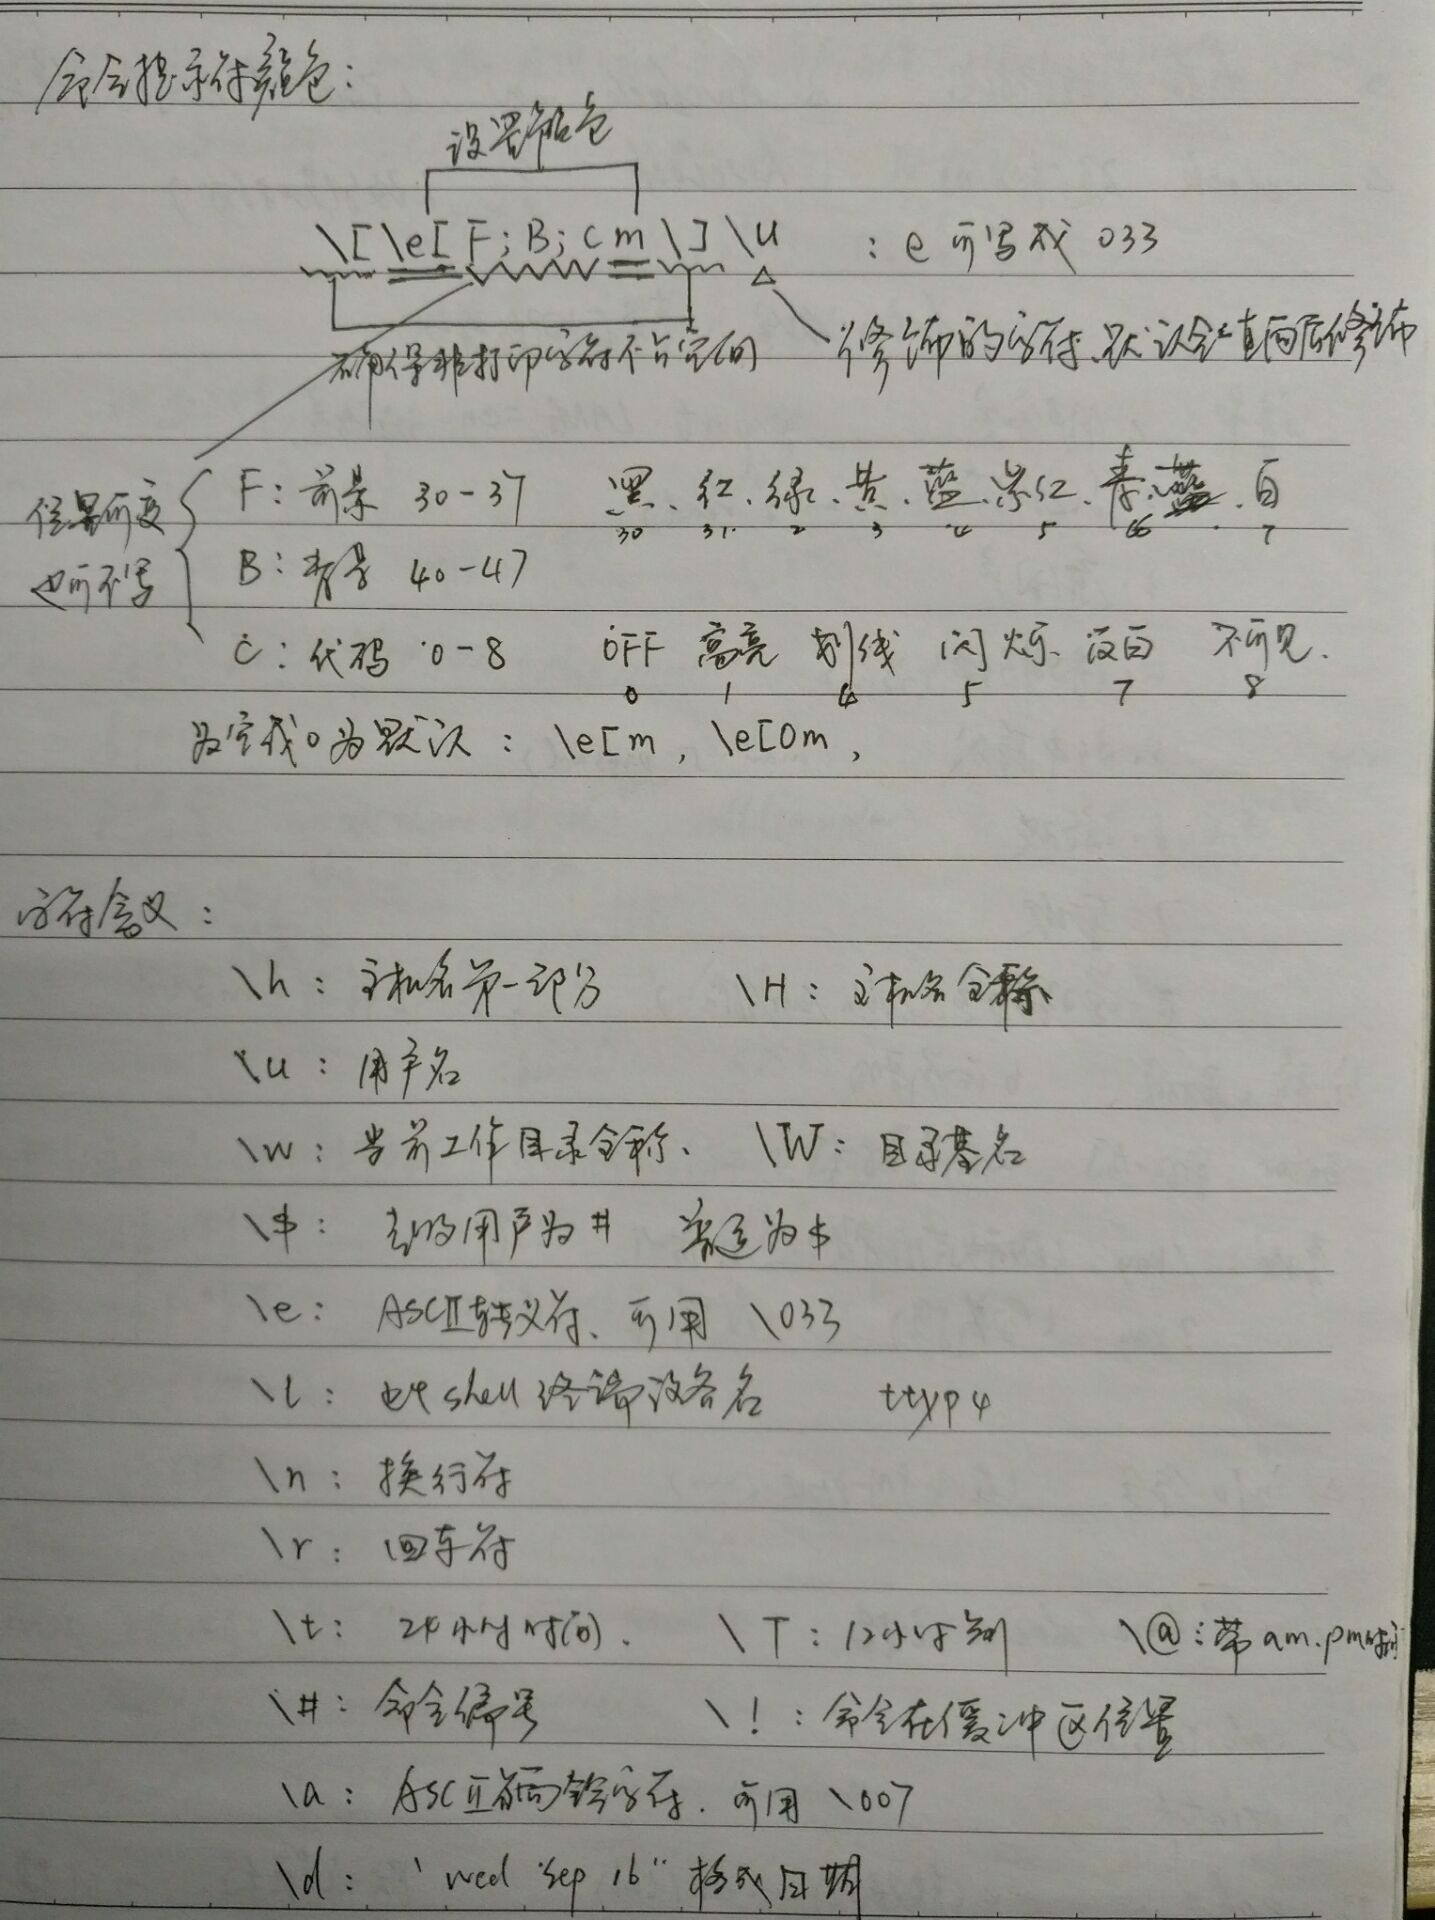 命令提示符颜色：
设置颜色
\[\e[F;B;Cm\]\u ：e可写成033
确保非打印字符不占空间 修饰的字符,默认会一直向后修饰
位置可变 也可不写
F：前景 30-37 黑、红、绿、黄、蓝、紫红、青、白
30 31 2 3 4 5 6 7
B：背景 40-47
C：代码 0-8 OFF 高亮 划线 闪烁 反白 不可见.
0 1 4 5 7 8
为空或0为默认：\e[m , \e[0m ,
字符含义：
\h：主机名第一部分 \H：主机名全称
\u：用户名
\w：当前工作目录全称、 \W：目录基名
\$： 用户为# 普通为$
\e： ASCII转义符、可用 \033
\l： shell终端设备名 ttyp4
\n：换行符
\r：回车符
\t：24小时时间. \T：12小时制 \@：带am.pm时间
\#：命令编号 \!：命令在缓冲区位置
\a：ASCII响铃字符.可用\007
\d："wed sep 16"格式日期